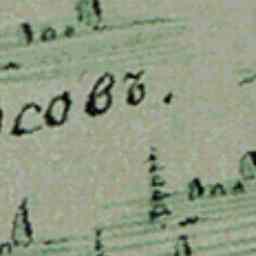 совъ.